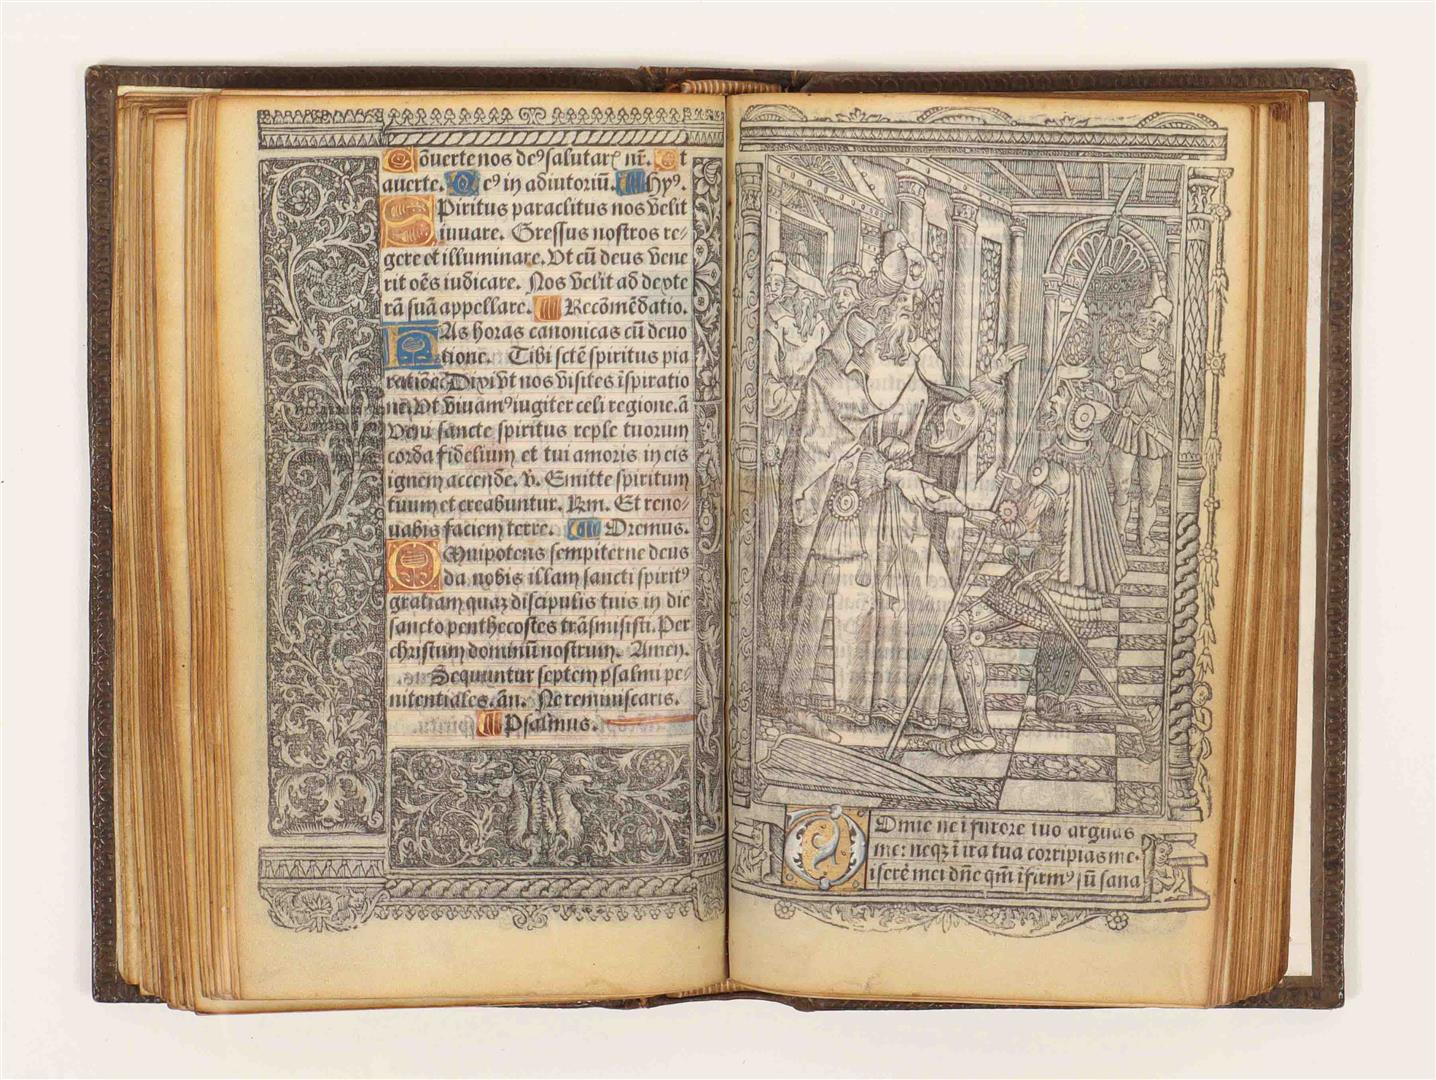 Cõuerte nos de⁹ salutar̃ nr̃. Et
auerte. De⁹ in adiutoriũ. Hỹ⁹.
SPiritus paraclitus nos velit
iuuare. Gressus nostros re-
gere et illuminare. Vt cũ deus vene
rit oẽs iudicare. Nos velit ad dexte
rã suã appellare. Recõmẽdatio.
HAs horas canonicas cũ deuo
tione. Tibi sctẽ spiritus pia
ratiõe Dixi vt nos visites ĩspiratio
ne. Vt viuam⁹ iugiter celi regione. ã
Veni sancte spiritus reple tuorum
corda fidelium et tui amoris in eis
ignem accende. v̉. Emitte spiritum
tuum et creabuntur. Rm. Et reno-
uabis faciem terre. Oremus.
OMnipotens sempiterne deus
da nobis illam sancti spirit⁹
gratiam quaz discipulis tuis in die
sancto penthecostes trãsmisisti. Per
christum dominũ nostrum. Amen.
Sequuntur septem psalmi pe-
nitentiales. ãn. Ne reminiscaris.
Psalmus.
DOmie ne ĩ furore tuo arguas
me: neqz ĩ ira tua corripias me.
iserẽ mei dñe qm̃ ĩfirm⁹ sũ sana